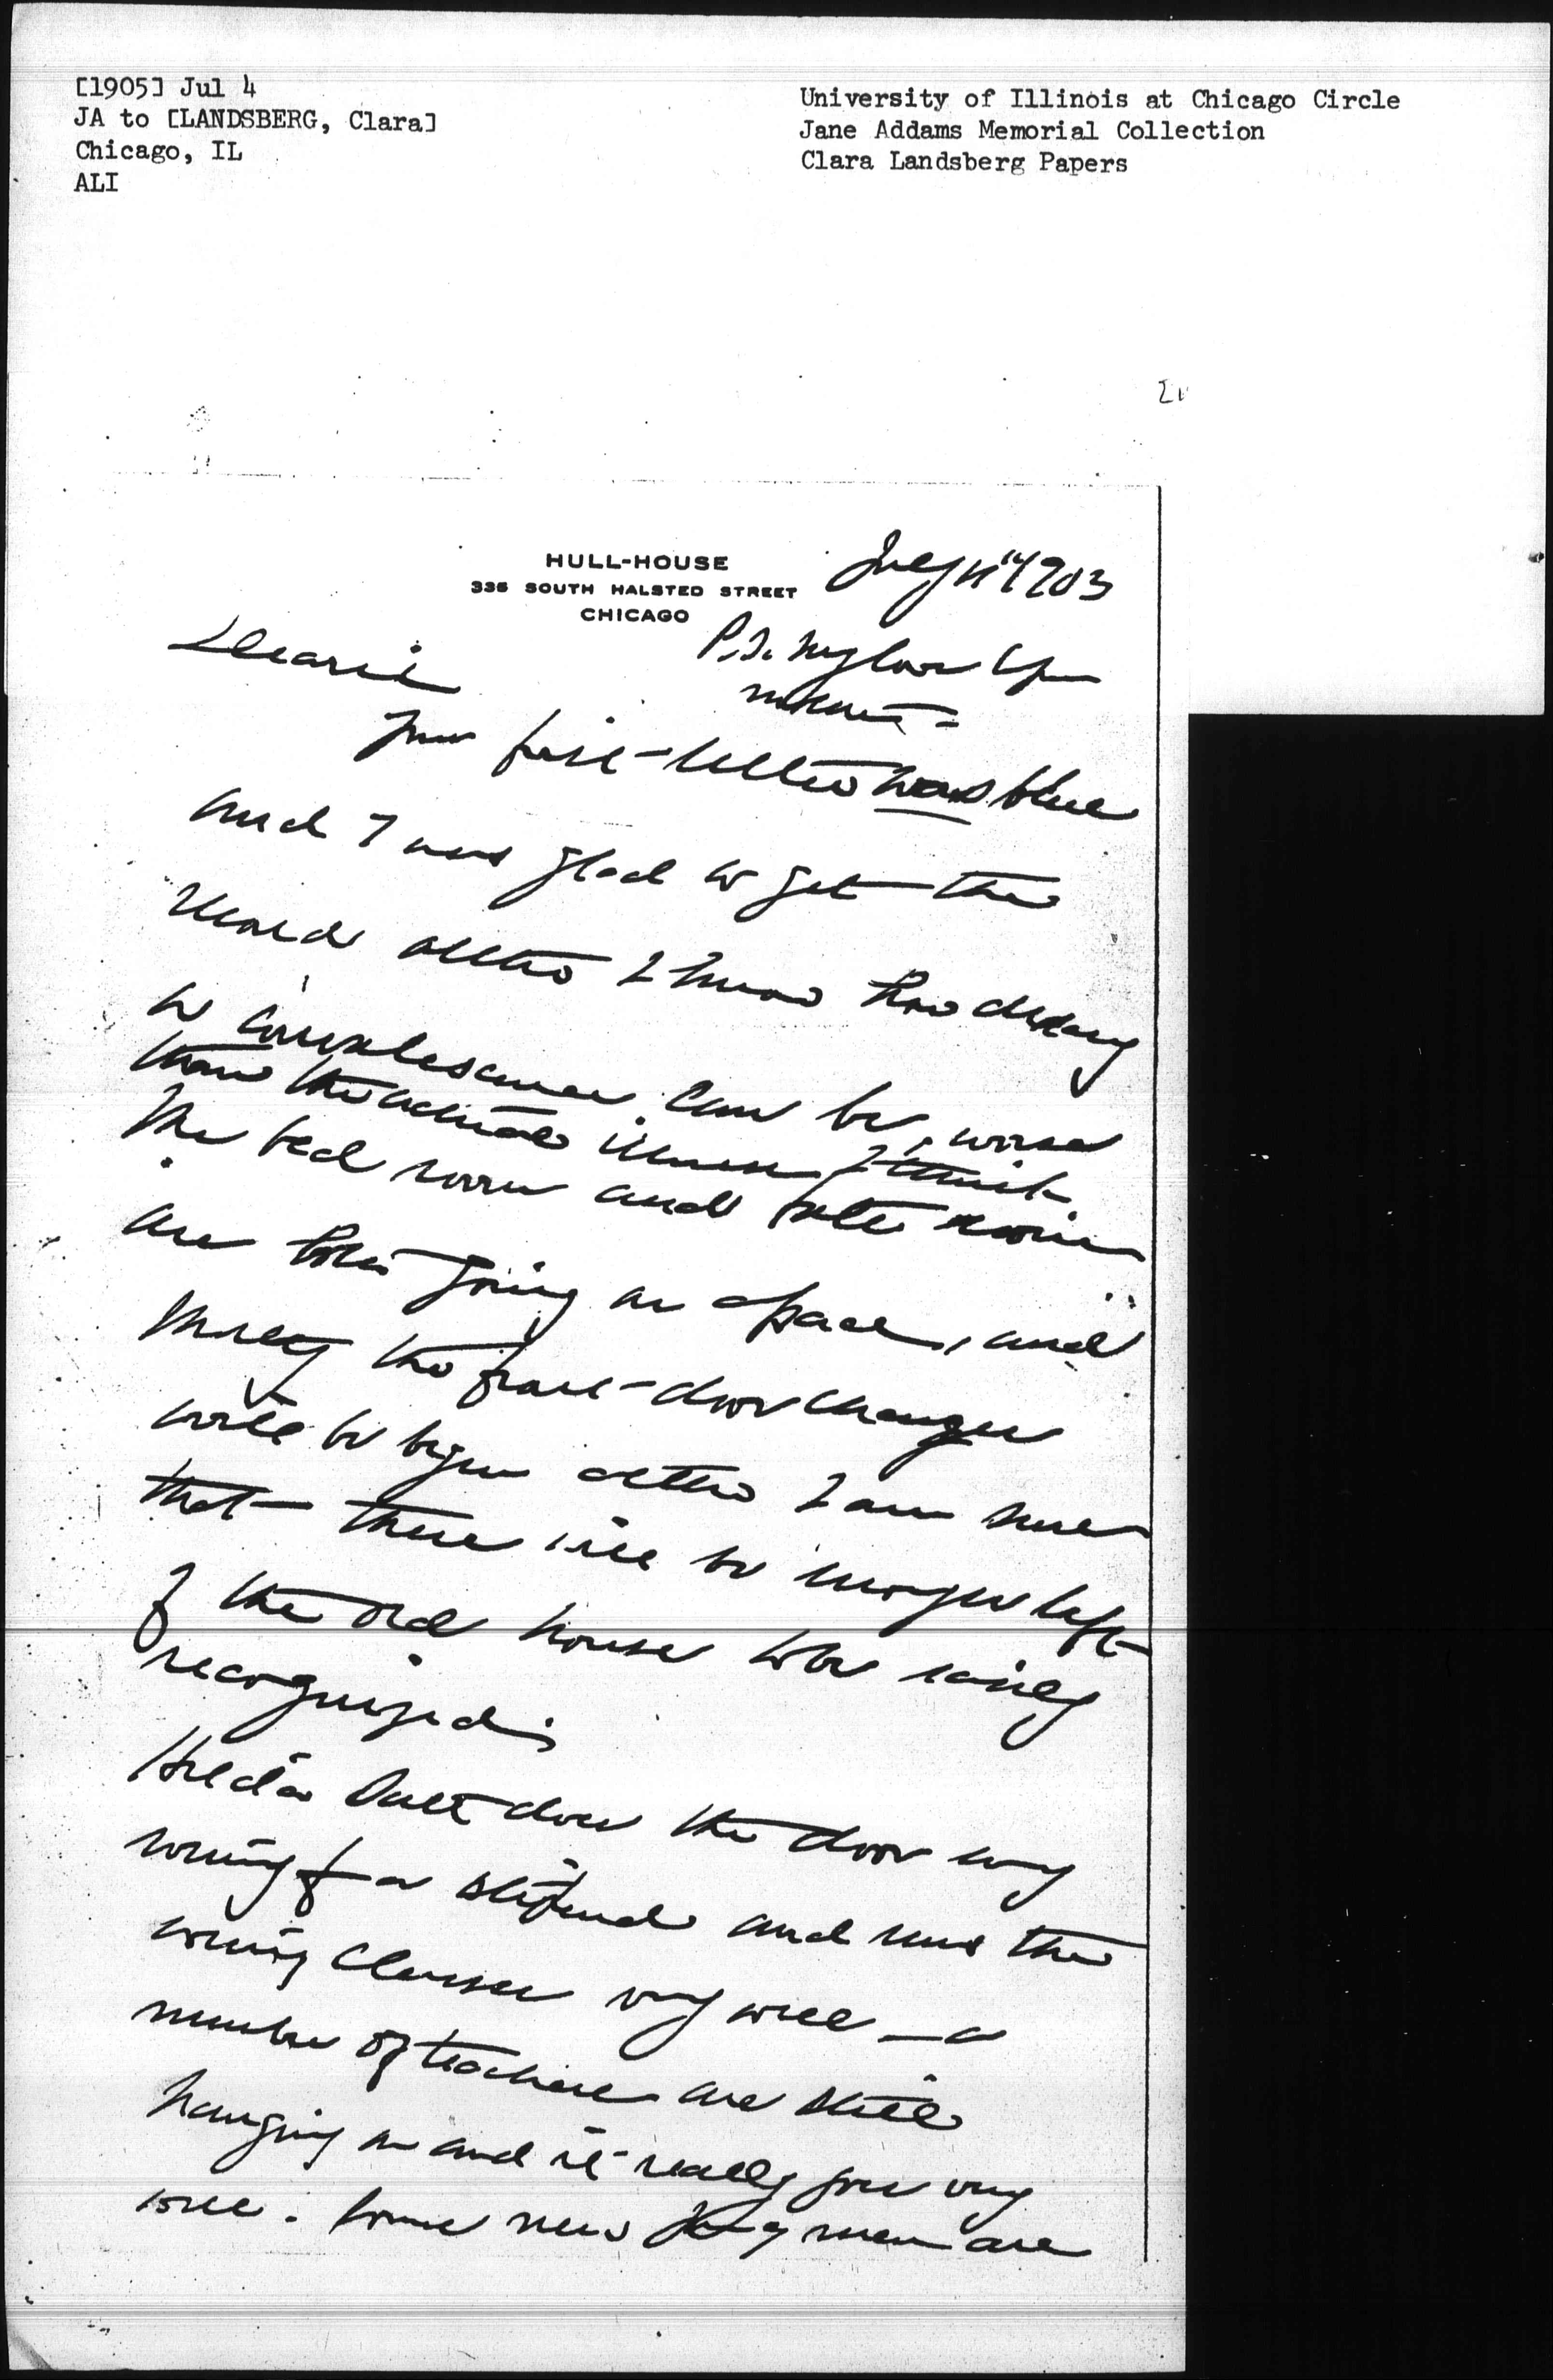 [1905] Jul 4
JA to [LANDSBERG, Clara]
Chicago, IL
ALI
University of Illinois at Chicago Circle
Jane Addams Memorial Collection
Clara Landsberg Papers
HULL-HOUSE
335 SOUTH HALSTED STREET
CHICAGO
July 4" 1905
P.S. my love to your
mother =
Dearie
Your first letter was blue
and I was glad to get the
second altho I know how dreary
a convalescence can be, worse
than the actual illness I think
The bed room and bath room
are both going on apace, and
the front door changes
will be begun altho I am sure
that there will be enough left
of the old house to be easily
recognized.
Hilda Satt does the door every
evening for a stipend and runs the
evening classes very well — a
number of teachers are still
hanging on and it really goes very
well. Some new young men are